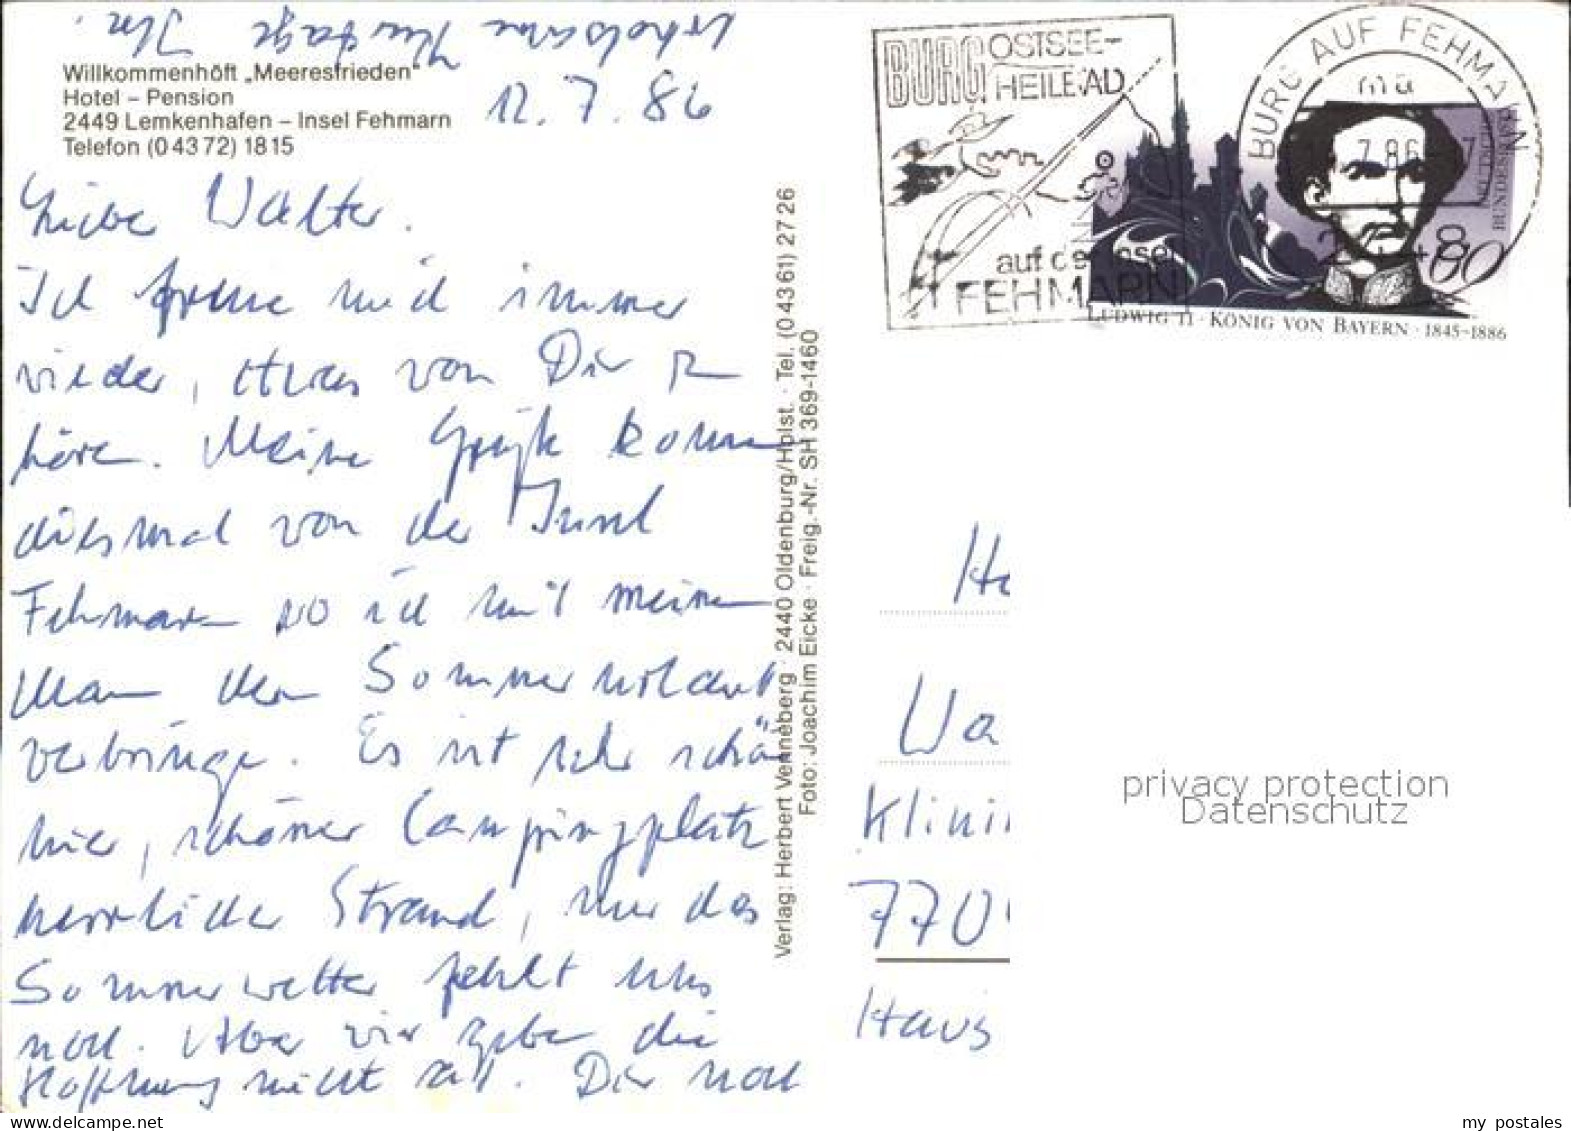 Willkommenhöft „Meeresfrieden"
Hotel – Pension
2449 Lemkenhafen – Insel Fehmarn
Telefon (0 43 72) 1815
12. 7. 86
Walter.
Ich freue mich immer
wieder, etwas von Dir zu
hören. Meine Grüße kommen
diesmal von der Insel
Fehmarn wo ich mit meinem
Mann den Sommerurlaub
verbringe. Es ist sehr schön
hier, schöner Campingplatz
herrlicher Strand, nur das
Sommerwetter fehlt uns
noch. Aber wir geben die
Hoffnung nicht auf. Dir noch
erholsame Kurtage
Verlag: Herbert Venneberg · 2440 Oldenburg/Holst. · Tel. (0 43 61) 27 26
Foto: Joachim Eicke · Freig.-Nr. SH 369-1460
BURG OSTSEE-
HEILBAD
auf der Insel
FEHMARN
BURG AUF FEHMARN
ma
7.86
2448
DEUTSCHE
BUNDESPOST
80
LUDWIG II · KÖNIG VON BAYERN · 1845–1886
Wa
Klini
770
Haus
privacy protection
Datenschutz
my_postales